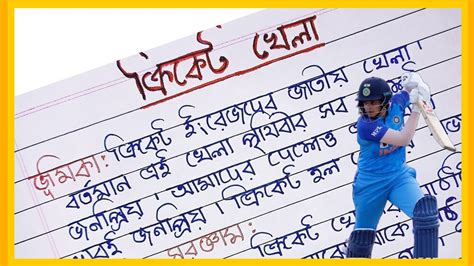 ক্রিকেট খেলা
ভূমিকা: ক্রিকেট ইংরেজদের জাতীয় খেলা।
বর্তমান এই খেলা পৃথিবীর সব
জনপ্রিয়। আমাদের দেশেও
খুবই জনপ্রিয়। ক্রিকেট হল
সরঞ্জাম: ক্রিকেট